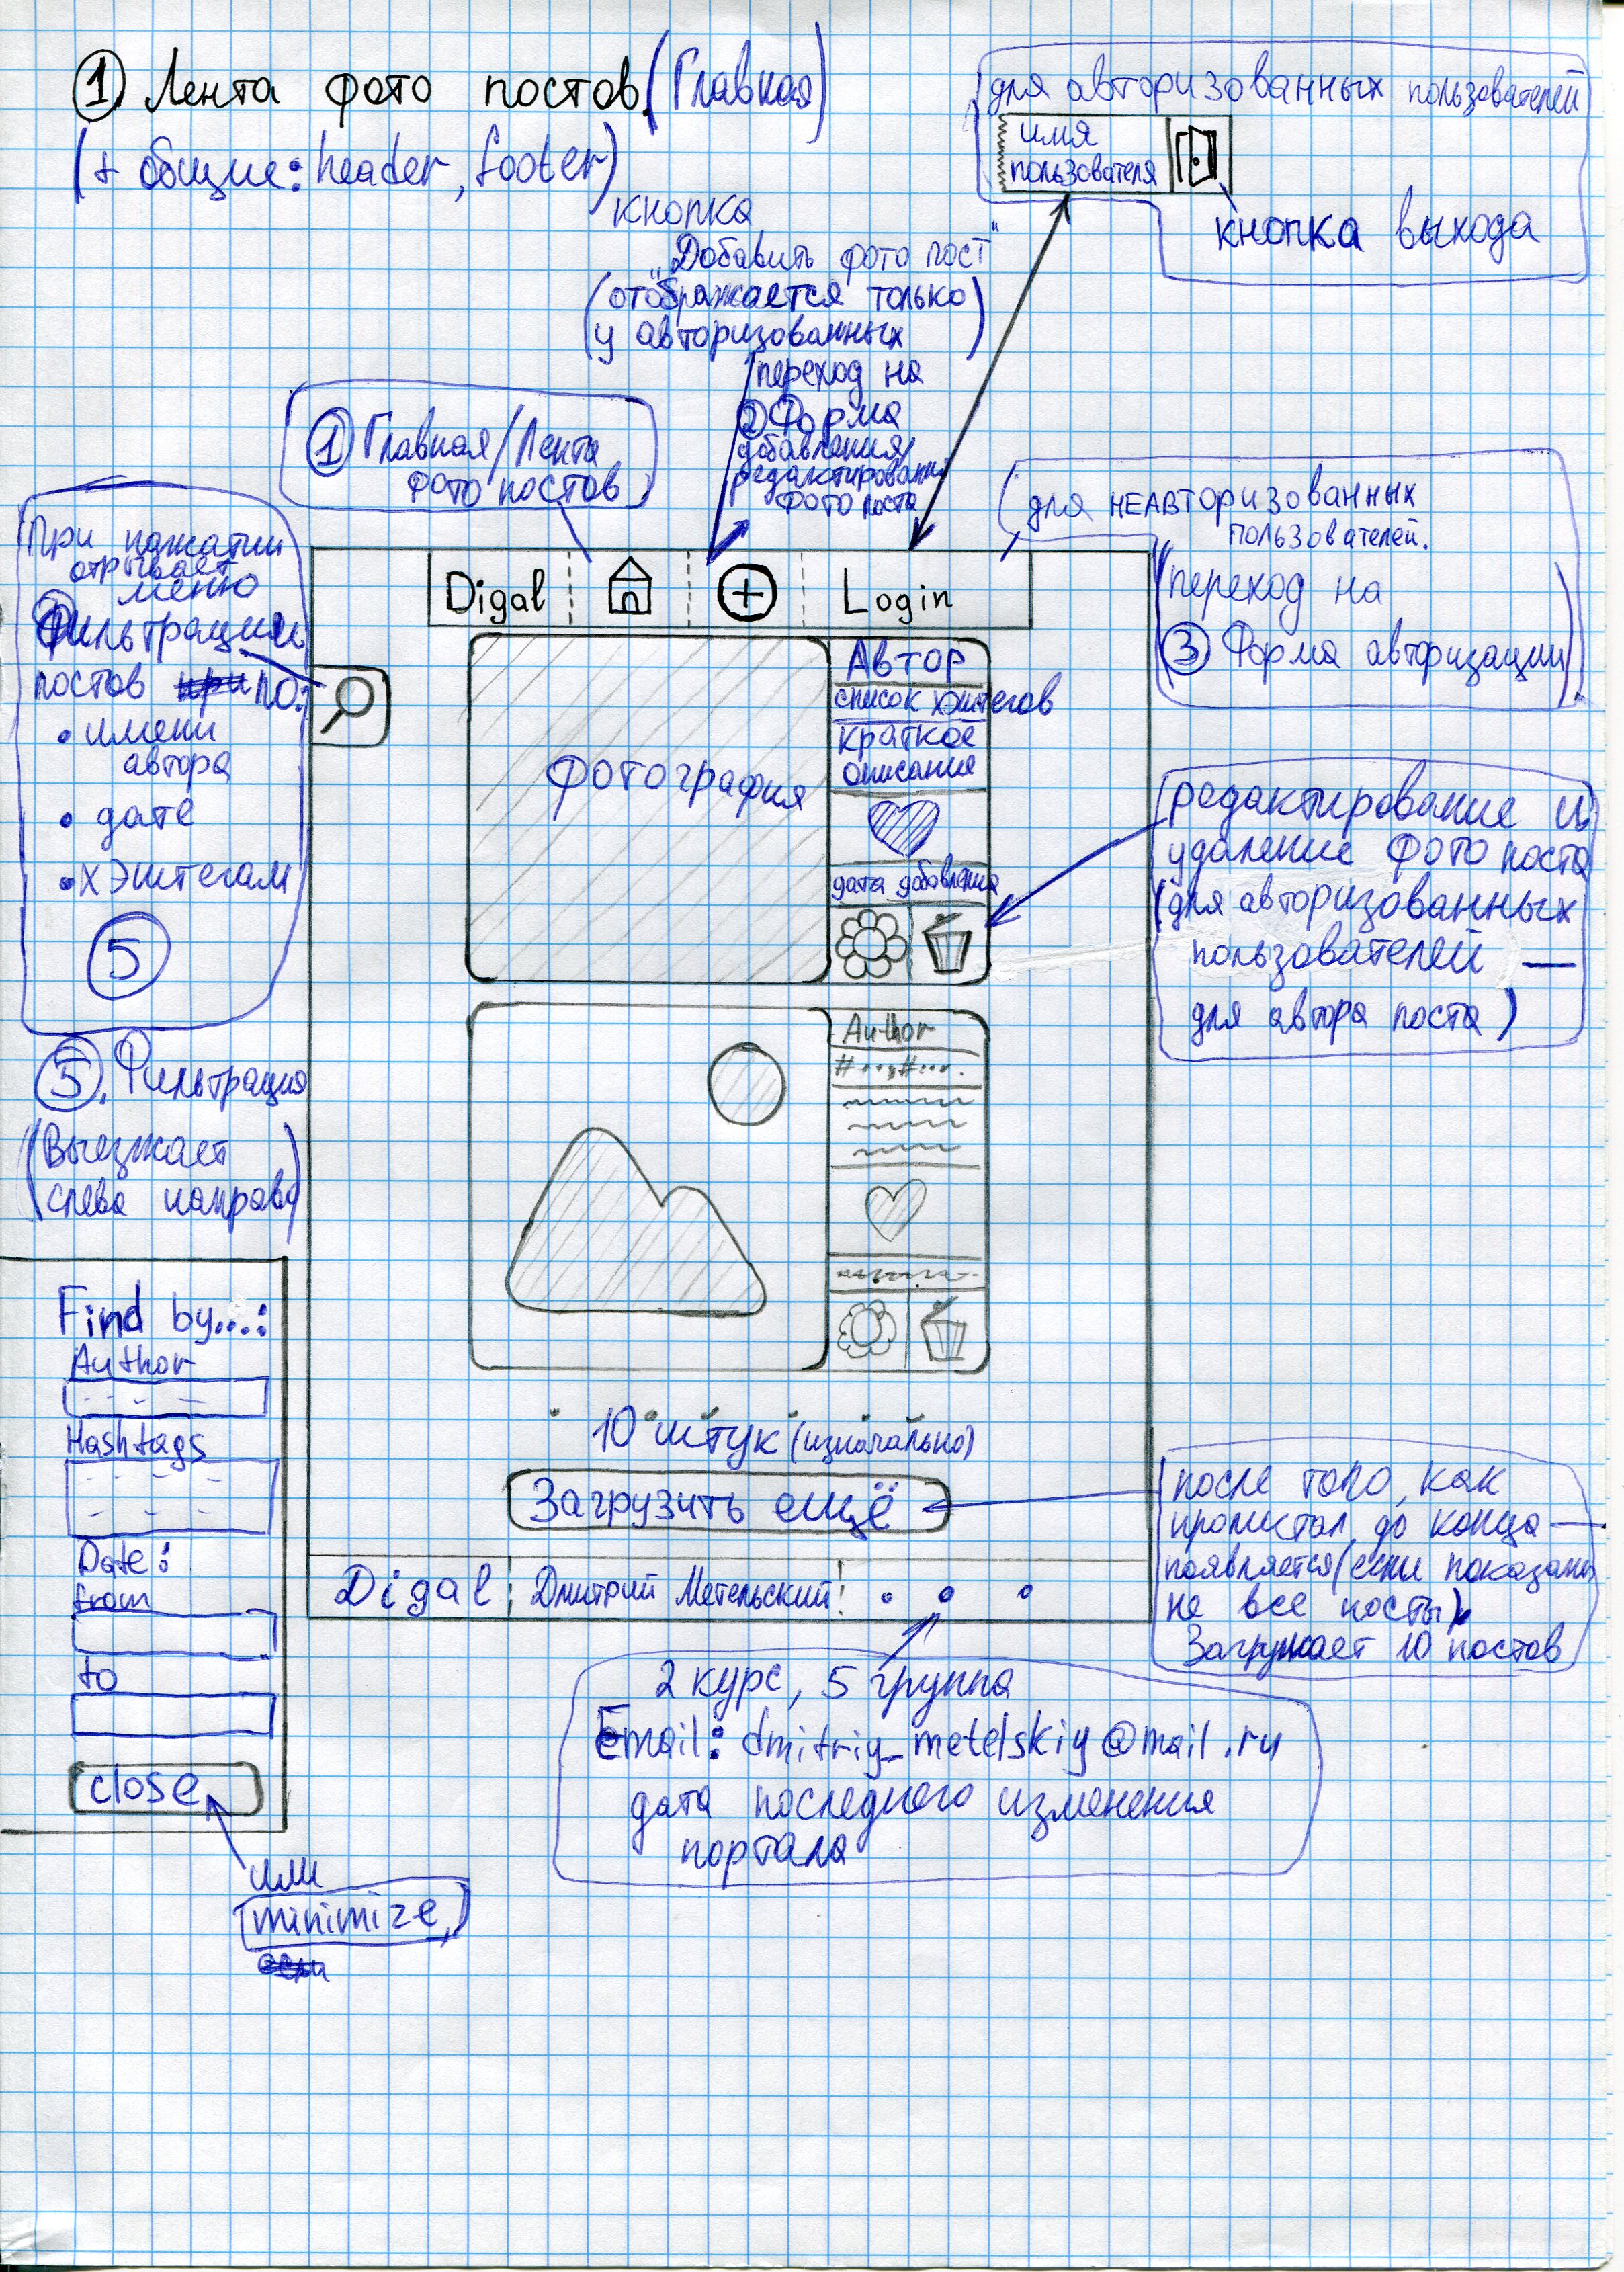 ① Лента фото постов. (Главная)
(+ общие: header, footer)
для авторизованных пользователей
имя
пользователя
кнопка выхода
кнопка
"Добавить фото пост"
(отображается только
у авторизованных)
переход на
② Форма
добавления/
редактирования
фото поста
① Главная/Лента
фото постов
для НЕАВТОРИЗОВАННЫХ
пользователей.
(переход на
③ Форма авторизации)
При нажатии
отрывает
меню
Фильтрации
постов по:
• имени
автора
• дате
• хэштегам
⑤
Digal
Login
Фотография
Автор
список хэштегов
краткое
описание
дата добавления
редактирование и
удаление фото поста
(для авторизованных
пользователей —
для автора поста)
⑤. Фильтрация
(Выезжает
слева направо)
Author
#...,#...
Find by...:
Author
Hashtags
Date:
from
to
close
или
minimize
10 штук (изначально)
Загрузить ещё
после того, как
пролистал до конца —
появляется (если показаны
не все посты).
Загружает 10 постов
Digal
Дмитрий Метельский
2 курс, 5 группа
Email: dmitriy_metelskiy@mail.ru
дата последнего изменения
портала